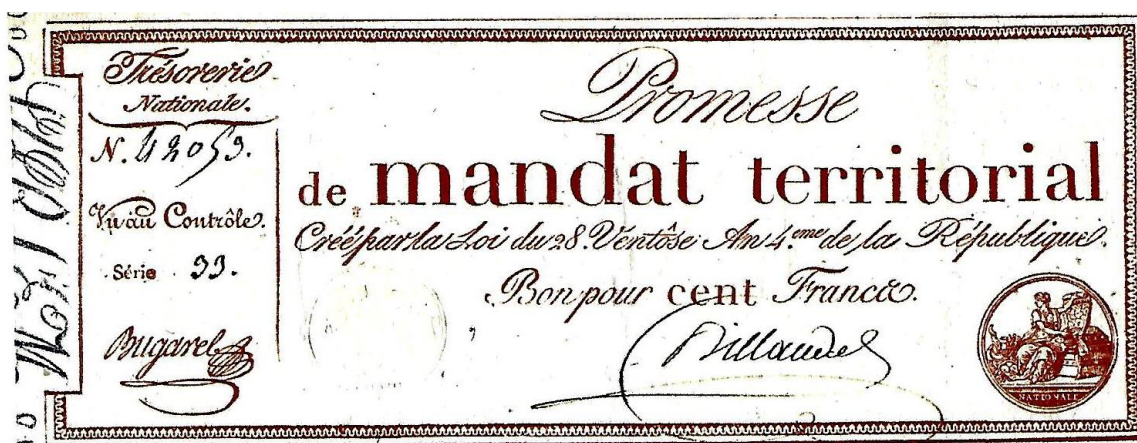 Trésorerie
Nationale.
N. 42053.
Vu au Contrôle.
Série 33.
Bugarel
Promesse
de mandat territorial
Créé par la Loi du 28. Ventôse An 4.eme de la République.
Bon pour cent Francs.
NATIONALE